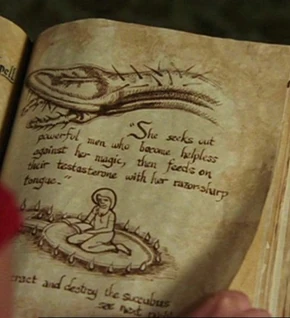 "She seeks out
powerful men who become helpless
against her magic, then feeds on
their testosterone with her razor-sharp
tongue."
and destroy the succubus
see next